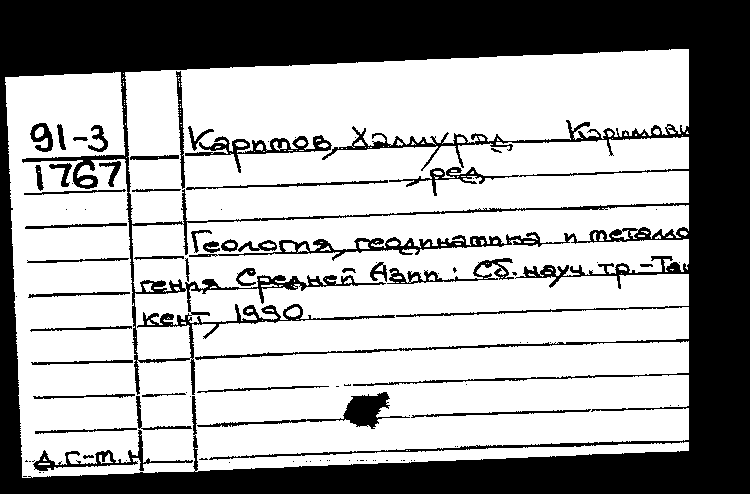 91-3
1767
Каримов, Халмурад Каримови
, ред.
Геология, геодинамика и метало
гения Средней Азии : Сб. науч. тр.-Таш
кент, 1990.
д.г.-м.н.